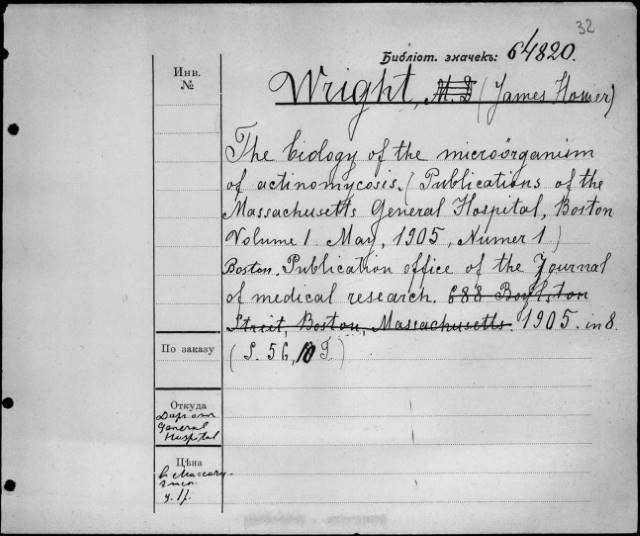 32
Библіот. значекъ: 64820.
Инв.
№
Wright, M. D (James Homer)
The biology of the microörganism
of actinomycosis. (Publications of the
Massachusetts General Hospital, Boston
Volume 1. May, 1905, Numer 1)
Boston. Publication office of the Journal
of medical research. 688 Boylston
Streit, Boston, Massachusetts. 1905. in 8.
По заказу
(S. 56, 10 T.)
Откуда
General
Hospital
Цѣна